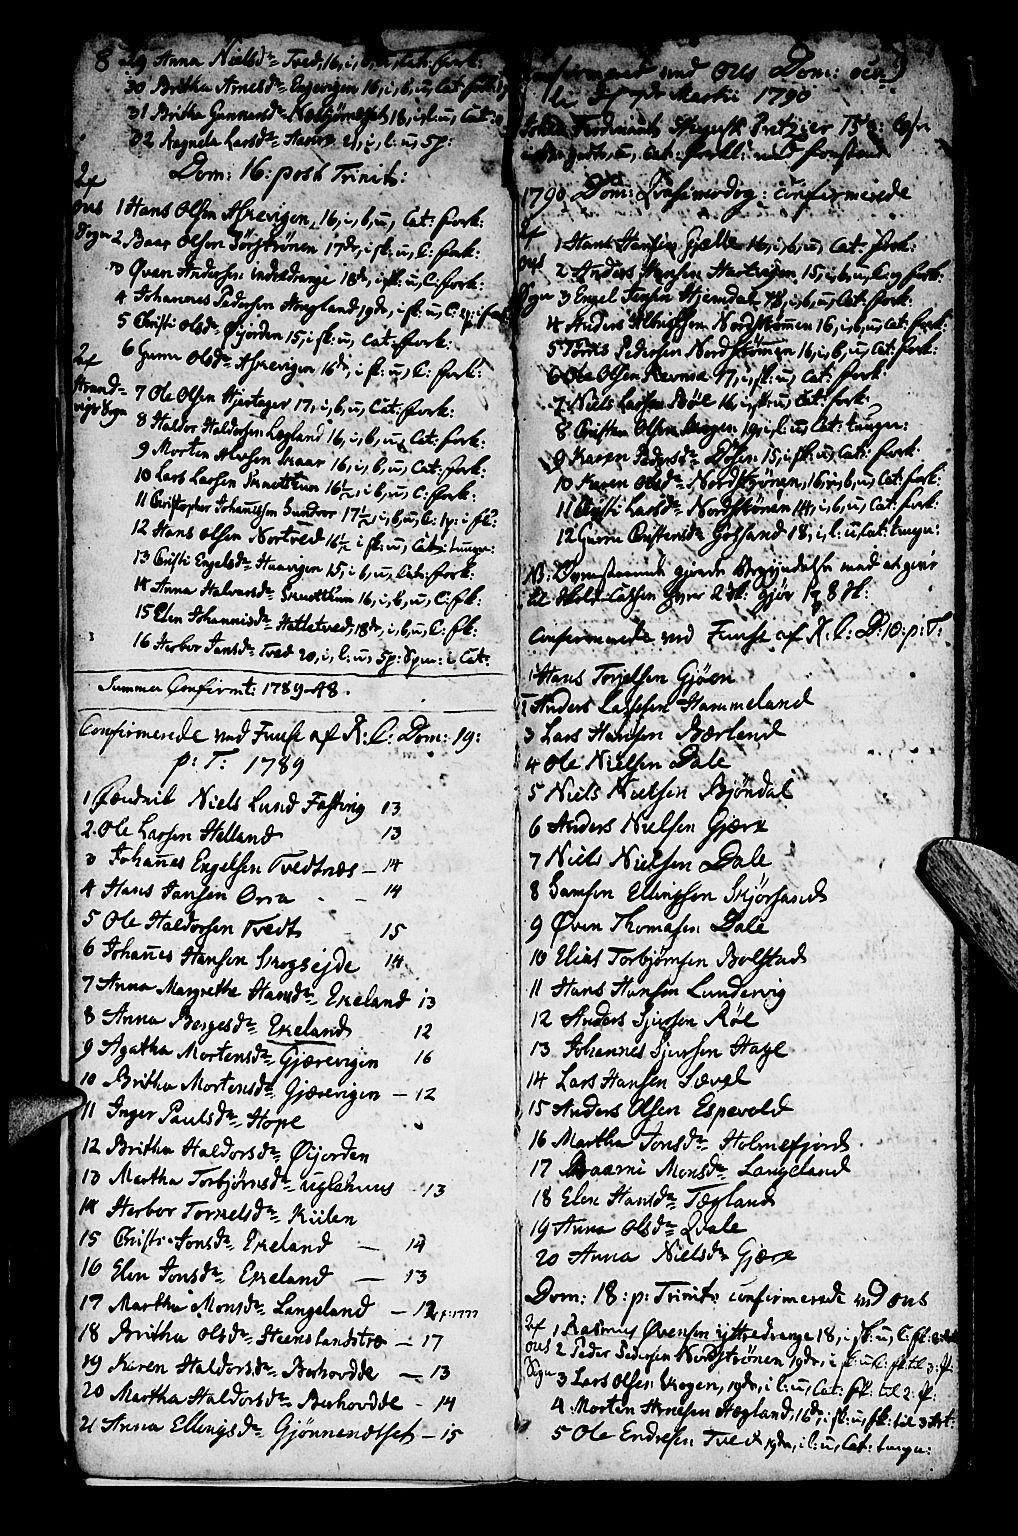 8 29 Anna Nielsdr. Tved, 16, i, b, u, Cat: fork:
30 Britha Arnesdr. 16, i, b, u, Cat: fork:
31 Britha Gunnarsdr. 18, i, l: u, Cat:
32 Ragnela Larsdr. 21, i, l: u, 5p:
Dom: 16: post Trinit:
Af
Ous
Sogn
1 Hans Olsen Askevigen, 16, i, b, u, Cat: fork:
2, Baar Olsen 17 dr, i fl: u, C: fork:
3 Øven Andersen indredrange 18 dr, i fl: u, C: fork:
4 Johannes Pedersen Hougland, 19 dr, i fl: u, C:
5 Christi Olsdr. Øijorden 15, i fl: u, Cat: fork:
6 Gunn Olsdr. Askevigen 16 dr, i fl: u, C: fork:
Af
Strand-
vigs Sogn
7 Ole Olsen Hjertager 17, i, b, u, Cat: fork:
8 Haldor Haldorsen Løgland 16, i, b, u, Cat: fork:
9 Morten Skaar 16, i, b, u, Cat: fork:
10 Lars Larsen Skuottum 16½, i b, u, C: fork:
11 Christopher Johannessen Sundvor 17½, i, b, u, C: 1p: i fl:
12 Hans Olsen Nortved 16½ i fl: u, Cat: tungn:
13 Christi Engelsdr. Haavigen 15, i b, u, Cat: fork:
14 Anna Halvorsdr. Skuotthum 16, i, b, u, C: fk:
15 Elen Johannisdr. Hatletved, 18 dr, i, b, u, C: fk:
16 Herbor Jansdr. Tved 20, i, l: u, 5p: Spm: i Cat:
Summa Confirmt: 1789. 48.
Confirmerede ved Fuust af K. C: Dom: 19:
p: T: 1789
1 Niels Lund Fasting 13
2. Ole Larsen Helland 13
3 Johannes Engelsen Tvedtnæs – 14
4 Hans Jansen Orra - - 14
5 Ole Haldorsen Tvedt - 15
6 Johannes Hansen Skogsejde 14
7 Anna Margrethe Hansdr. Ekeland 13
8 Anna Borgesdr. Ekeland 12
9 Agatha Mortensdr. Gjærevigen 16
10 Britha Mortensdr. Gjærevigen – 12
11 Inger Paulsdr. Hope
12 Britha Haldorsdr. Øijorden
13 Martha Torbjørnsdr. Uglehuus 13
14 Herbor Torkelsdr. Kiilen
15 Christi Jonsdr. Ekeland — 14
16 Elen Jonsdr. Ekeland — 13
17 Martha Monsdr. Langeland – 12 : 1777
18 Britha Olsdr. Steens Landstræ – 17
19 Karen Haldorsdr. Berhovdde – 13
20 Martha Haldorsdr. Berhovdde - 14
21 Anna Ellingsdr. Gjønnendlseth – 15
9
Confirmeret ved Oles Dom: ocu
li d: 7de Martii 1790
Ferdinant August Pretzier 15
Cat: forkl: med forstand
1790 Dom: Qvasimodog: confirmerede
Af
Ous
Sogn
1 Hans Hansen Gjelle 16, i, b, u, Cat: fork:
2 Anders Hansen Haavigen 15, i b, u, C: fork:
3 Engel Jensen Hjemdal 18, i, b, u, Cat: fork:
4 Anders Albrigtsen Nordstrønen 16, i, b, u, Cat: fork:
5 Tørris Pedersen Nordstrønen 16, i, b, u, Cat: fork:
6 Ole Olsen Revnia 17, i, fl: u, Cat: fork:
7 Niels Larsen Røe 16, i, fl: u, Cat: fork:
8 Christen Olsen Skogen 19, i, l: u, Cat: tungn:
9 Karen Pedersdr. 15, i fl: u, Cat: fork:
10 Karen Olsdr. Nordstrønen, 16, i, b, u, Cat: fork:
11 Christi Larsdr. Nordstrønen 14, i, b, u, Cat: fork:
12 Gunni Christensdr. Gotland 18, i, l: u, Cat: tungn:
NB: Domstaaende giorde Begyndelse med at give
til Skole Cassen hver 2 fk: gjør 1 8 fk:
Confirmerede ved Fuust af K. C: D: 10: p: T:
1 Hans Torjelsen Gjøen
2 Anders Larsen Hammeland
3 Lars Hansen Bærland
4 Ole Nielsen Dale
5 Niels Nielsen Bjöndal
6 Anders Nielsen Gjære
7 Niels Nielsen Dale
8 Samson Ellingsen Skjørsand
9 Øven Thomasen Dale
10 Elias Torbjørnsen Bolstad
11 Hans Hansen Lundervig
12 Anders Sjursen Røe
13 Johannes Sjursen Hage
14 Lars Hansen Sævel
15 Anders Olsen Espevold
16 Martha Jonsdr. Holmefjord
17 Baarni Monsdr. Langeland
18 Elen Hansdr. Tægland
19 Anna Olsdr. Qvale
20 Anna Nielsdr. Gjære
Dom: 18: p: Trinit: confirmerede ved ous
Af
ous
Sogn
1 Rasmus Øvensen ÿttredrange 18, i fl: u, C: fl:
2 Peder Pedersen Nordstrønen 19 dr, i fl: u C: fk til 3: p:
3 Lars Olsen Skogen, 19 dr, i l: u, Cat: fk. til 2: p:
4 Morten Arnesen Hægland, 16 dr, i fl: u, fk: til 3 Art:
5 Ole Endresen Tved 19 dr, i l: u, Cat: tungn: